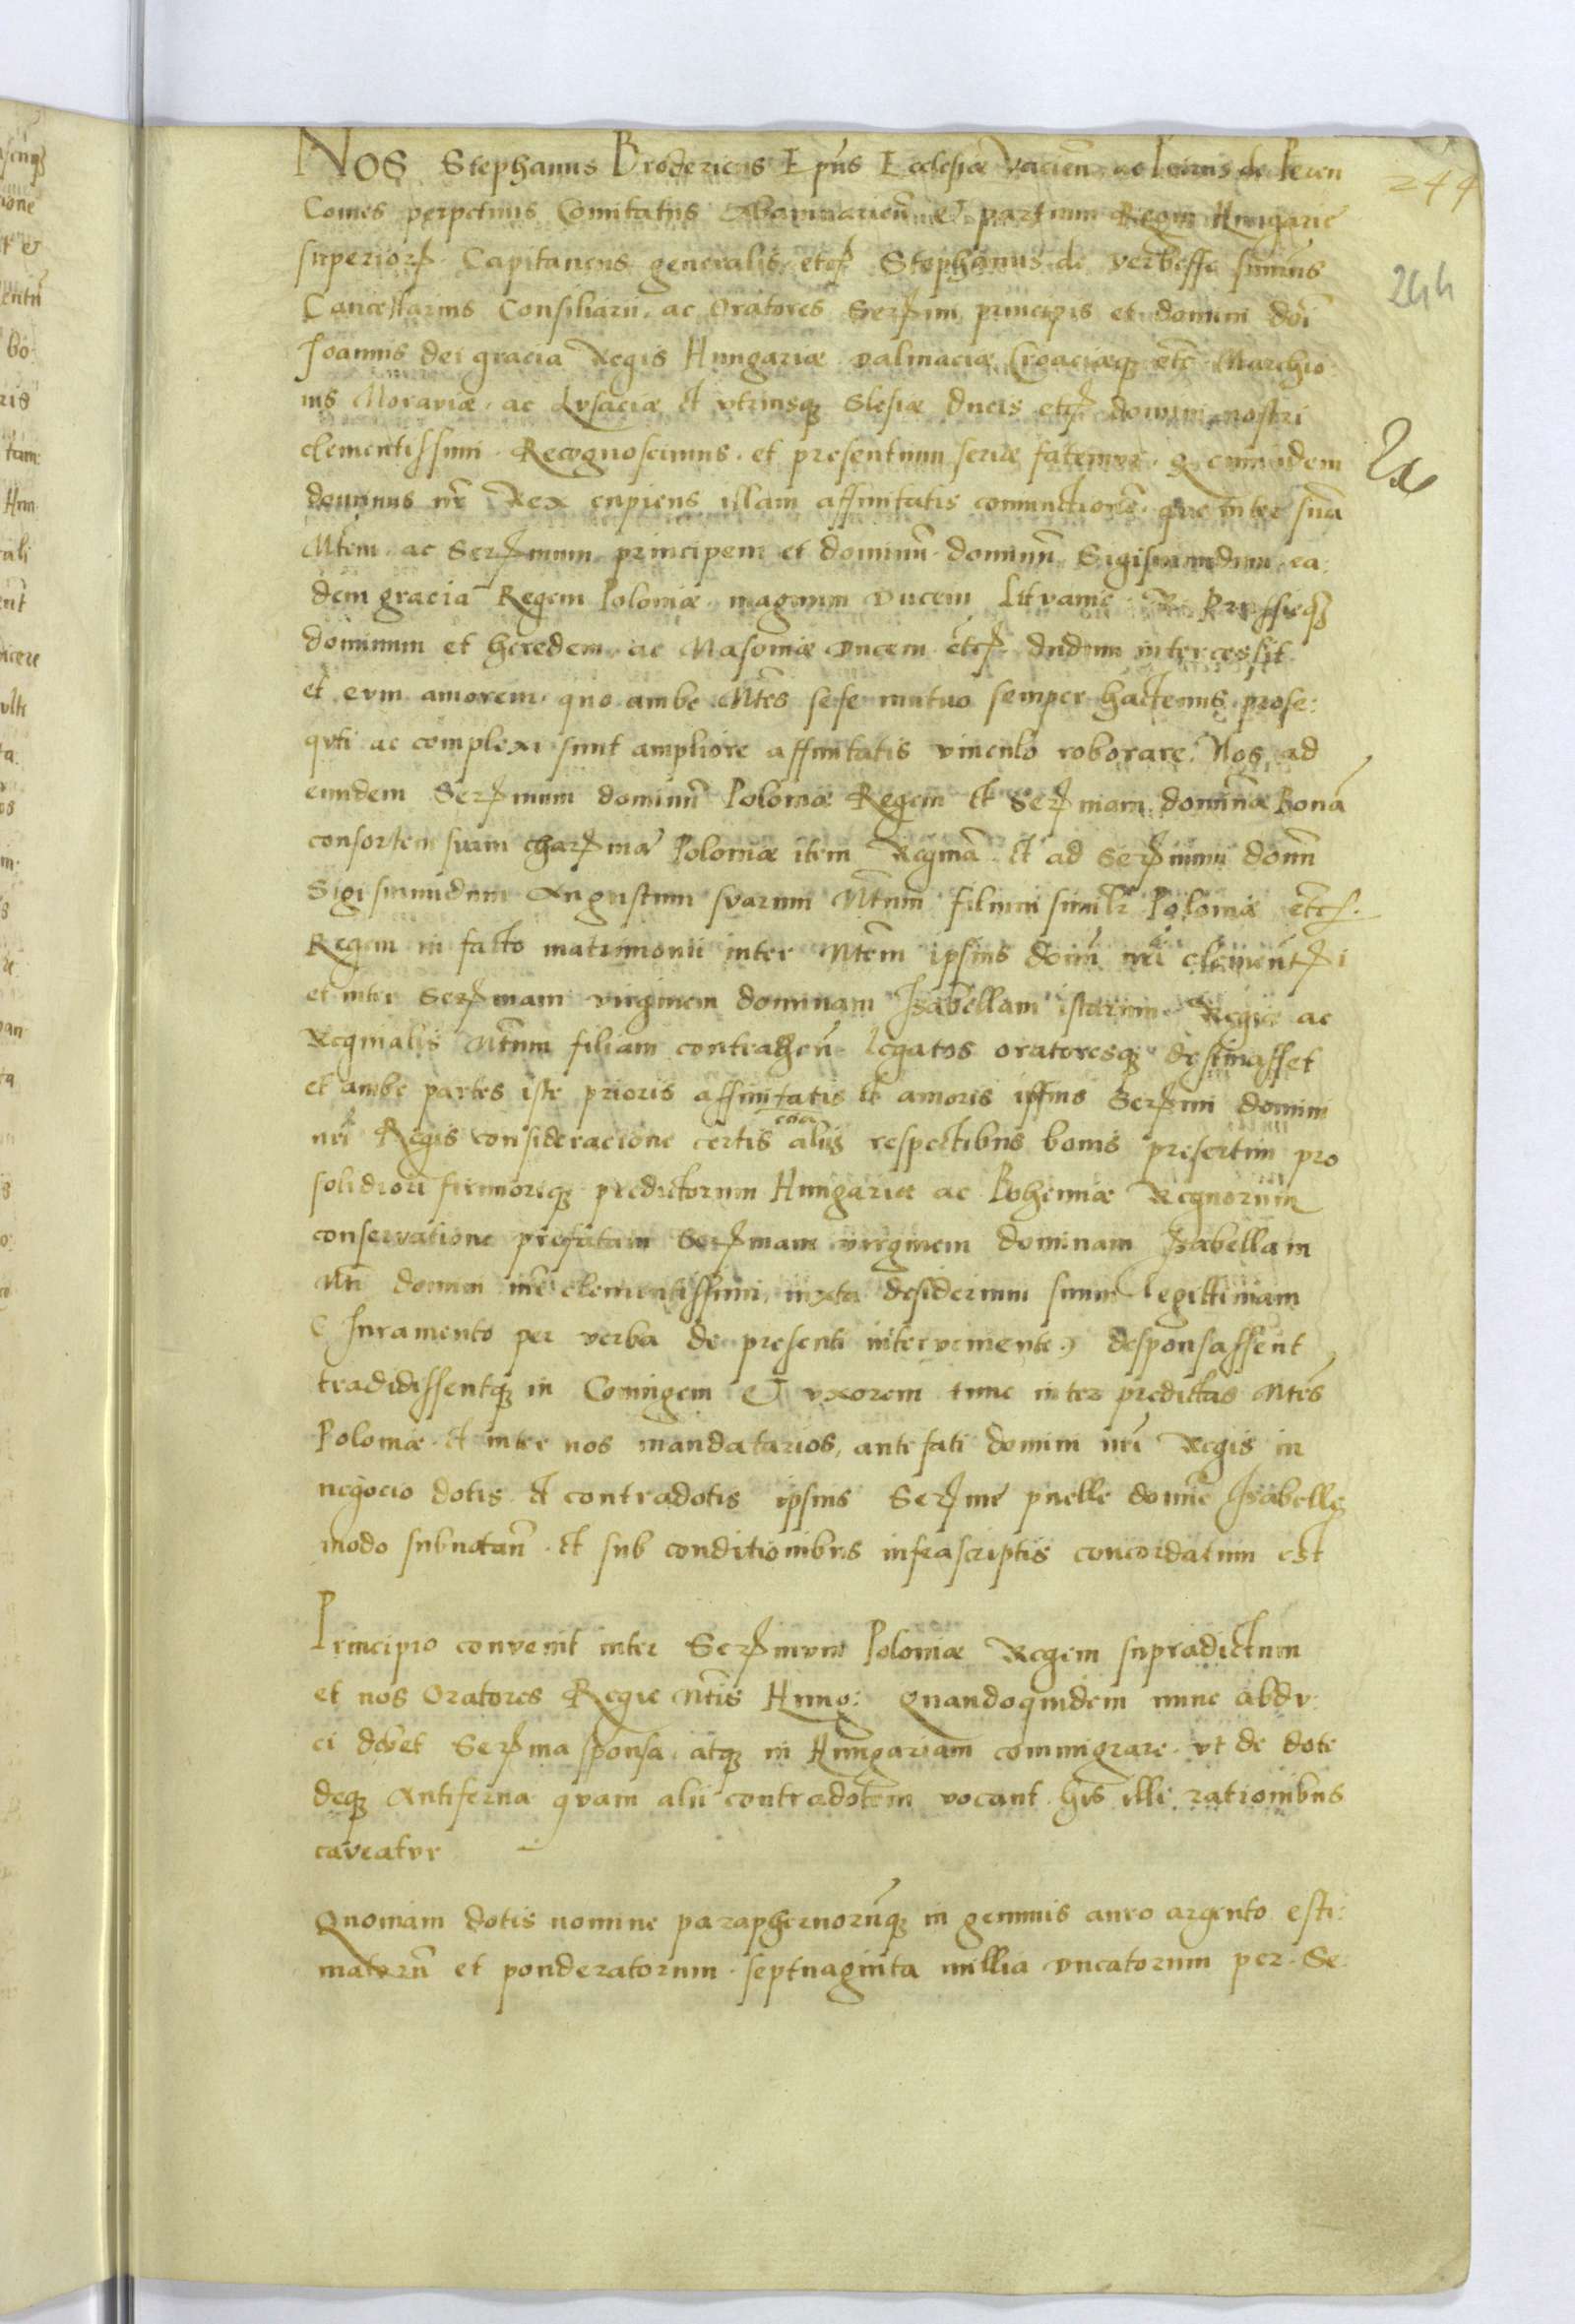 Nos Stephanus Brodericus Epūs Ecclesiæ Vacieñ ac Petrus de Peren
Comes perpetuus Comitatus Abavivarieñ et partium Regni Hungarie
superiorꝝ Capitaneus generalis, etcꝭ Stephanus de verbeſſe sum̃us
Cancellarius Consiliarii, ac Oratores Serꝭmi principis et domini doi
Joannis dei gracia Regis Hungariæ Dalmaciæ Croaciæqꝫ etc̃ Marchio
nis Moraviæ, ac Lvsaciæ et vtriusqꝫ Slesiæ ducis etcꝭ domini nostri
clementissimi. Recognoscimus. et presentium serie fatemur. q. cum idem
dominus nr̃ Rex cupiens illam affinitatis coniunctionẽ. que inter suã
Mtem ac Serꝭmum principem et dominũ dominũ Sigismundum ea
dem gracia Regem Poloniæ magnum Ducem Litvanie Prussieqꝫ
dominum et heredem ac Masoniæ Ducem etcꝭ dudum intercessit
et evm amorem quo ambe Mtes sese mutuo semper hactenus prose:
qvti ac complexi sunt ampliore affinitatis vinculo roborare. Nos ad
eundem Serꝭmum dominũ Poloniæ Regem et Serꝭmam dominãm Bonã
consortem suam charꝭmã Poloniæ item Reginã et ad Serꝭmum domñ
Sigismundum Augustum svarum Mtum filium simil̃r Poloniæ etcꝭ.
Regem in facto matrimonii inter Mtem ipsius domi nri clementꝭi
et inter Serꝭmam virginem dominam Isabellam istarum Regie ac
Reginalis Mtum filiam contraheñ legatos oratoresqꝫ destinasset
et ambe partes iste prioris affinitatis et amoris ipsius Serꝭmi domini
nri Regis consideracione certis etiã aliis respectibus bonis presertim pro
solidiori firmoriqꝫ predictorum Hungariæ ac Bohemiæ Regnorum
conservatione prefatam Serꝭmam virginem dominam Isabellam
Mti domini nri clementissimi, iuxta desiderium suum legittimam
Iuramento per verba de presenti interveniente, desponsassent
tradidissentqꝫ in Coniugem et vxorem tunc inter predictas Mtes
Poloniæ et inter nos mandatarios, antefati domini nri Regis in
negocio dotis et contradotis ipsius Serꝭme puelle domne Isabelle
modo subnotañ. et sub conditionibus infrascriptis concordatum est
Principio convenit inter Serꝭmvm Poloniæ Regem supradictum
et nos Oratores Regie Mtis Hung: Quandoquidem nunc abdv
ci debet Serꝭma sponsa, atqꝫ in Hungariam commigrare. vt de dote
deqꝫ Antiferna qvam alii contradotem vocant his illi rationibus
caveatvr
Quoniam dotis nomine paraphernorũqꝫ in gemmis auro argento esti:
matorũ et ponderatorum. septuaginta millia Ducatorum per. Se
244
244